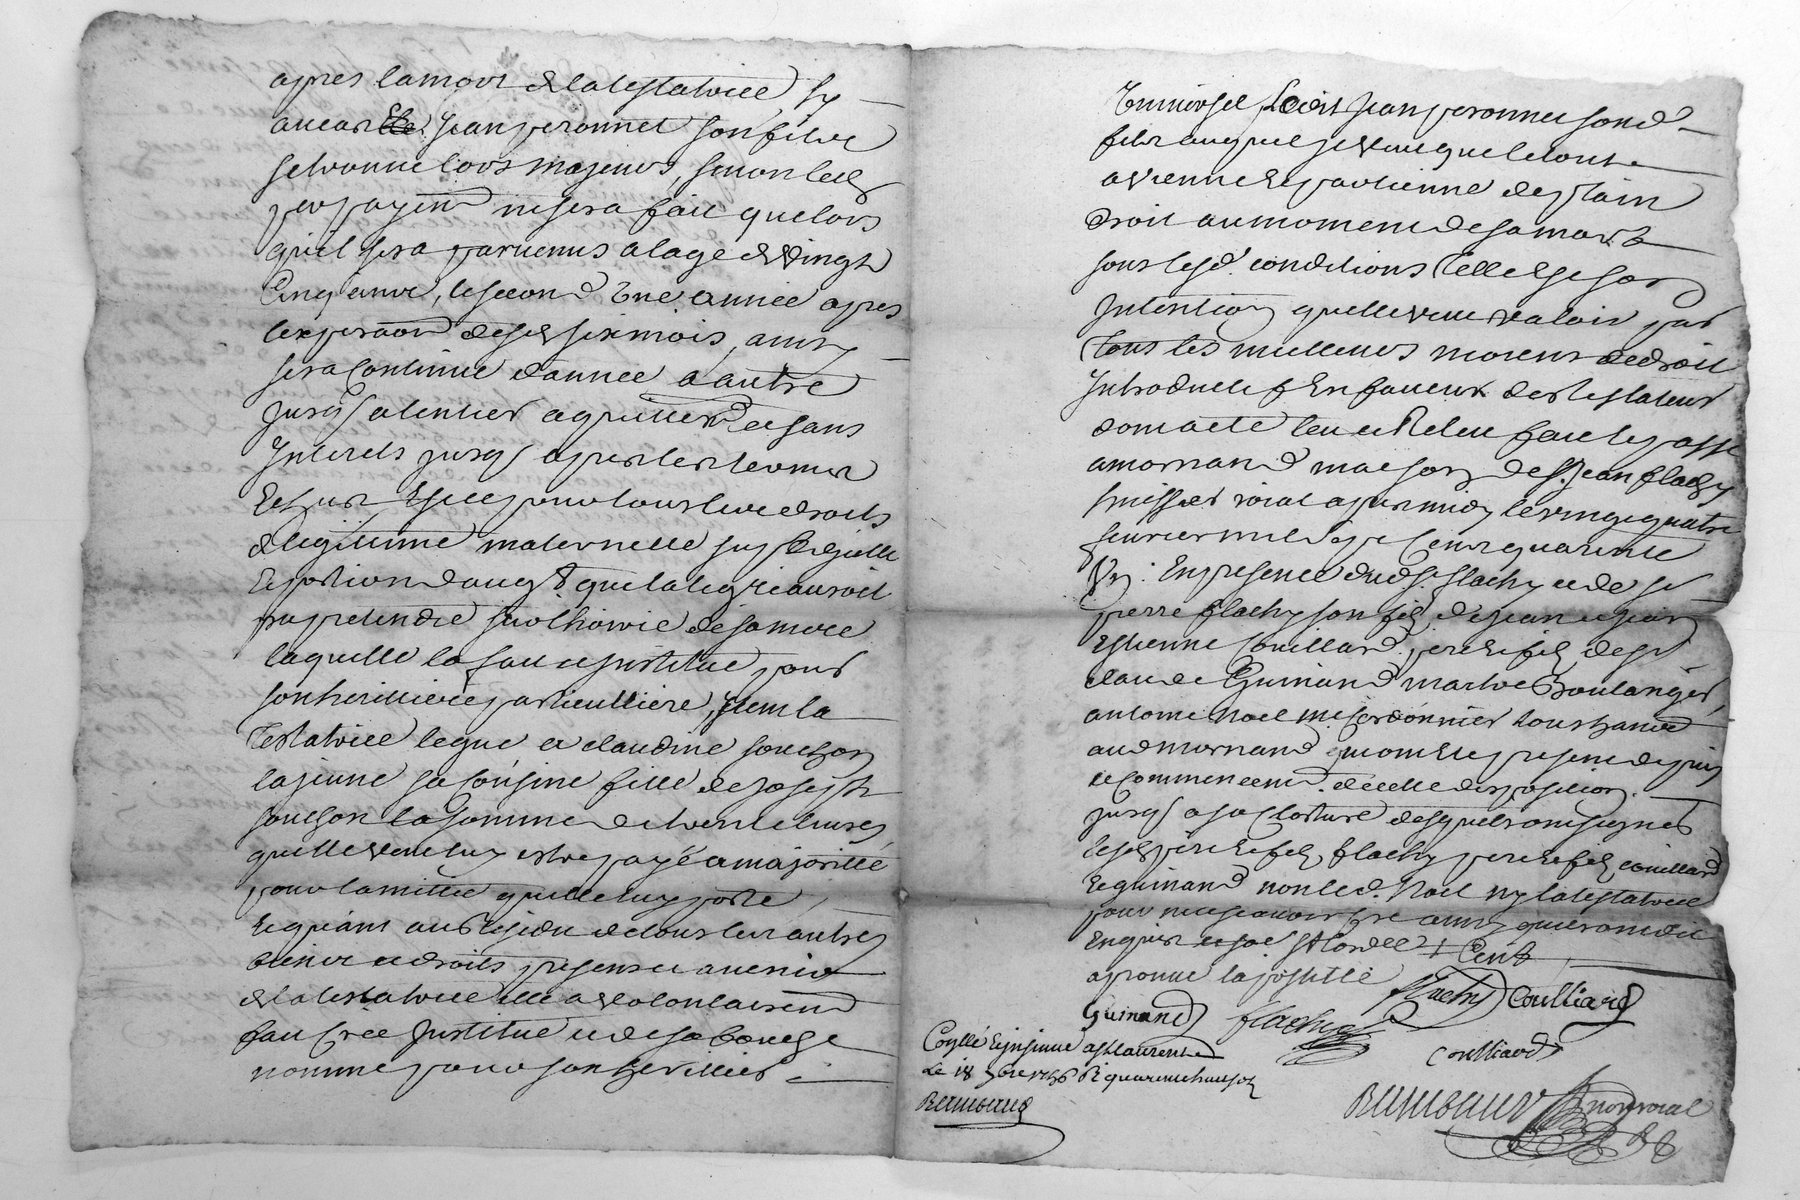 apres la mort de la testatrice sy
au cas Jean peronnet son filz
se trouve lors majeurs, sinon led
per payem ne sera fait que lors
quil sera parvenus a lage de vingt
Cinq ans, le second Une année apres
lexpiraon desd six mois, ainsy
sera Continué dannee a autre
jusqs a lentier aquittem et sans
Interets jusqs apres les termes
Et pour tous ses droits
de legitime maternelle suplement
Et portion daugt que la legrée auroit
pu pretendre sur lhoirie de sa mere
laquelle la fait et institué pour
son heritiere particulliere, Item la
Testatrice legue a claudine souchon
la jeune sa cousine fille de Joseph
souchon la somme de trente livres
quelle veut luy estre payé a majorité
pour lamitié quelle luy porte,
Et quant au Residu de tous les autres
biens et droits presens et avenir
de la testatrice elle a volontairem
fait créé Institué et de sa bouche
nommé pour son heritier
Universel ledit Jean peronnet sond
filz auquel elle veut que le tout
avienne et partienne de plain
droit au moment de sa mort
sous lesd. conditions Telle est son
Intention quelle veut valoir par
Tous les meilleurs moiens de droit
Introductifs En faveur des testateurs
dont acte leu et Releu fait et passé
a mornand maison de sr. Jean flachy
huissier roial apres midy le vingt quatre
fevrier mil sept Cent quarante
Six. En presence dud sr flachy et de sr
pierre flachy son fils, de Jean
Estienne Couillard pere et fils, de sr
claude Guinand maitre Boulanger,
antoine Noel me Cordonnier tous
aud mornand qui ont Eté present depuis
le commencem. de cette disposition
jusqs a sa closture desquels ont signés
lesd pere et fils flachy pere et fils couillard
Et guinand non led. Noel ny la testatrice
pour ne scavoir Ecre ainsy quils ont dit
Enquis et
aprouve la postille
flachy Coulliard
Guinand flachy
Coulliard
Collé Et insinué a St laurent
Le 18 1746 R quarante